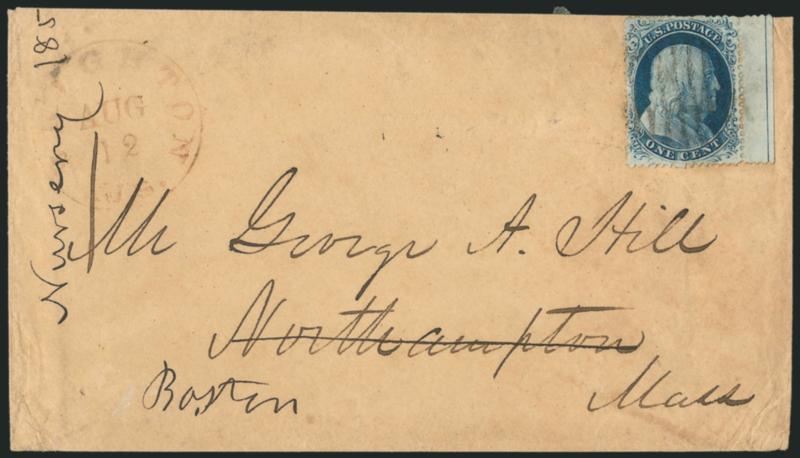 Nursery 185
IGHTON
AUG
12
U.S. POSTAGE
ONE CENT
Mr George A. Hill
Northampton
Boston Mass